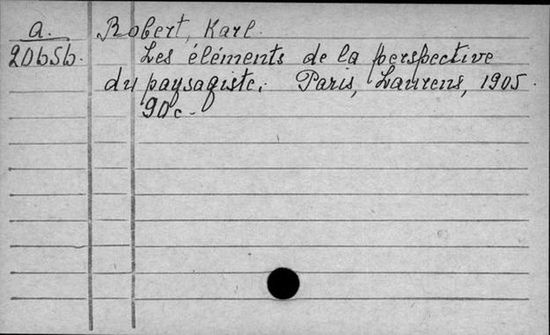 a. Robert, Karl.
20656. Les éléments de la perspective
du paysagiste. Paris, Laurens, 1905.
90c.